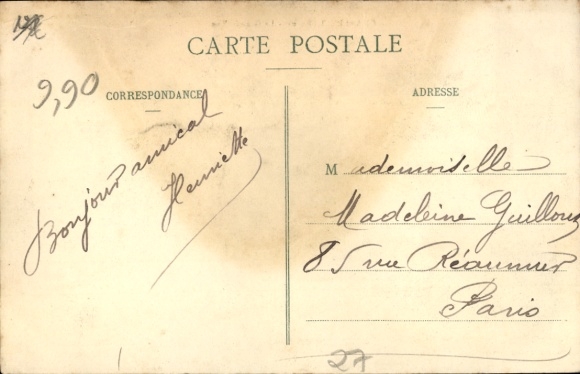 CARTE POSTALE
9,90
CORRESPONDANCE
Bonjour amical
Henriette
ADRESSE
Mademoiselle
Madeleine Guilloux
85 rue Réaumur
Paris
27